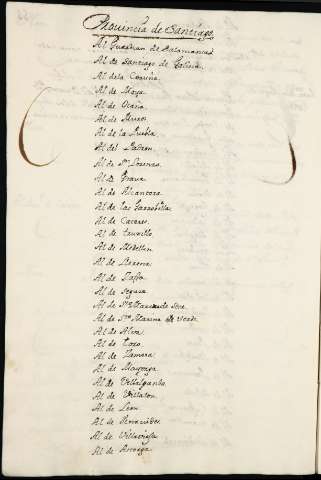 Provincia de Santiago.
Al Guardian de Salamanca
Al de Santiago de Galicia.
Al dela Coruña
Al de Noya
Al de
Al de
Al de la Puebla
Al del Padron
Al de Sn. Lorenzo
Al de
Al de Alcantara
Al de las Garrobilla
Al de Caceres
Al de truxillo
Al de Medellin
Al de Llerena
Al de Zaffra
Al de Segura
Al de Sta.
Al de Sta. Marina
Al de Alva
Al de Toro
Al de Zamora
Al de Mayorga
Al de Villalpando
Al de Villalon
Al de Leon
Al de Benavides
Al de Villavieja
Al de Astorga